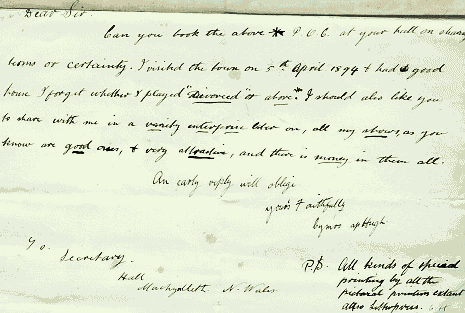 Dear Sir.
Can you book the above * P.O.C. at your hall on sharing
terms or certainty. I visited the town on 5th April 1894 & had a good
house I forget whether I played "Divorced" or above.* I should also like you
to share with me in a variety enterprise later on, all my shows, as you
know are good ones, & very attractive, and there is money in them all.
An early reply will oblige
yours faithfully
Cymro ap Hugh
To.
Secretary.
Hall
Machynlleth N. Wales
P.S. All kinds of special
printing by all the
pictorial printers extant
also